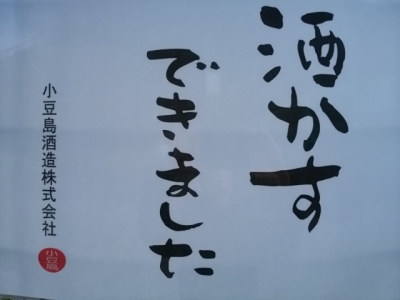 酒かす
できました
小豆島酒造株式会社
小豆島